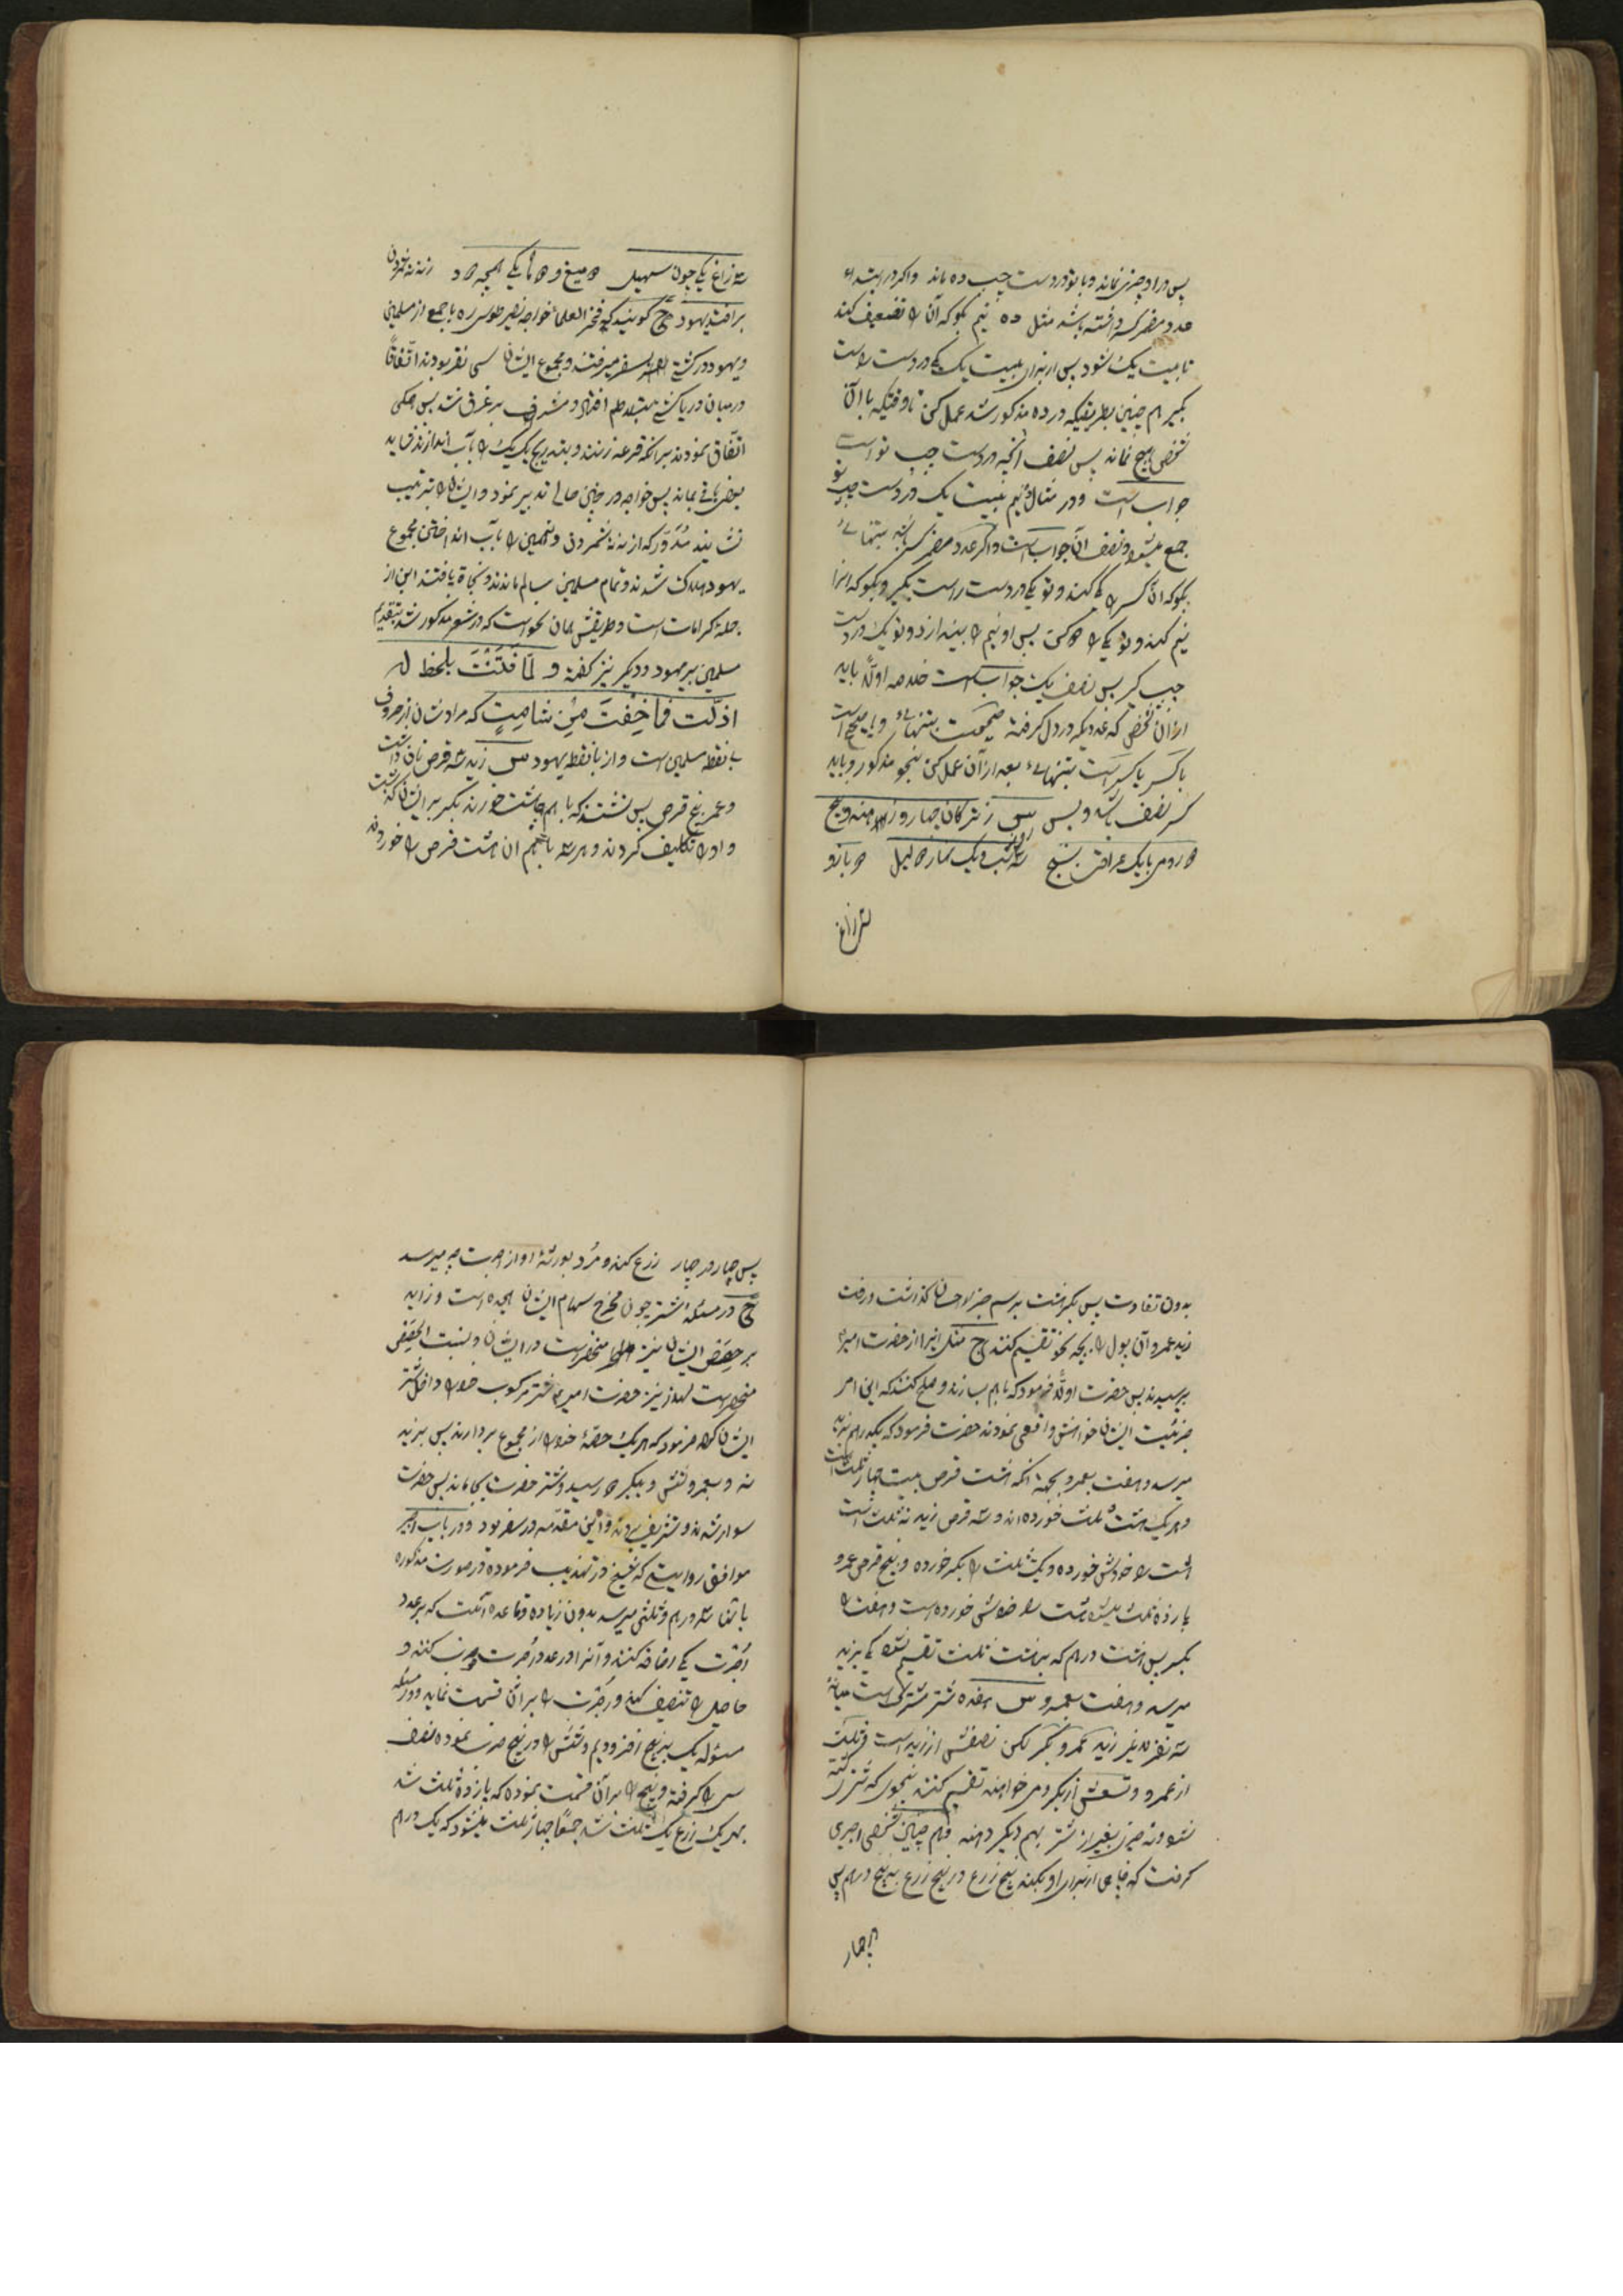 پس در او چیزی نماند و با تو در دست چپ ده ماند و اگر در ابتداء
عدد مضمر کسر داشته باشد مثل ده نیم بگو که آن را تضعیف کند
تا بیست یک شود پس از برای بیست یک یکی در دست راست
بگیر هم چنین بطریقیکه در ده مذکور شد عمل کن تا وقتیکه با آن
شخص هیچ نماند پس نصف آنچه در دست چپ تو است
جواب است و در مثال ده نیم بیست یک در دست چپ تو
جمع میشود و نصف آن جواب است و اگر عدد مضمر کسر باشد بتنهائی
بگو که آن کسر را یکی کند و تو یکی در دست راست بگیر و بگو که آنرا
نیم کند و تو یکی را پس او نیم را بیندازد و تو یک در دست
چپ گیر پس نصف یک جواب است خلاصه اولا باید
از آن شخص که عددیکه در دل گرفته صحیحست بتنهائی و یا صحیح است
با کسر یا کسر است بتنهائی بعد از آن عمل کن بنحو مذکور و باید
کسر نصف باشد و بس س ز ترکان چهار و ز هند و پنج
دو رومی با یک عراقی بسنج سه شب و یک نهار دو لیل دو باز و
سه زاغ
سه زاغ یکی چون سهیل دو میغ و دو ماه یکی همچه دود ز نه نه شمردن
بر افتد یهود ج گویند که فخر العلماء خواجه نصیر طوسی ره با جمعی از مسلمین
و یهود در کشتی بسفر میرفتند و مجموع ایشان سی نفر بودند اتفاقاً
در میان دریا کشتی بتلاطم افتاد و مشرف بر غرق شد پس همگی
اتفاق نمودند بر آنکه قرعه زنند و بتدریج یک یک را بآب اندازند شاید
بعضی باقی بماند پس خواجه در چنین حالی تدبیر نمود و ایشان را بترتیب
نشانید مدور که از نه نه شمردن و نهمین را بآب انداختن مجموع
یهود هلاک شدند و تمام مسلمین سالم ماندند و نجاة یافتند این از
جمله کرامات است و طریقش همان نحو است که در شعر مذکور شد بتقدیم
مسلمین بر یهود و دیگر نیز گفته و لَمّا فُتِنْتُ بلحظ له
اذلت فما خِفْتَ مِنْ شامِتٍ که مرادشان از حروف
بی نقطه مسلمین است و از با نقطه یهود س زید سه قرص نان داشت
و عمر پنج قرص پس نشستند که با هم چاشت خورند بکر بر ایشان گذشت
و او را تکلیف کردند و هر سه با هم آن هشت قرص را خوردند
بدون تفاوت پس بکر هشت درهم جزاء احسان گذاشت و رفت
زید و عمرو آن پول را بچه نحو تقسیم کنند ج مثل اینرا از حضرت امیر
پرسیدند پس حضرت اولا فرمود که با هم بسازند و صلح کنند که این امر
جزئیست ایشان خواهش واقعی نمودند حضرت فرمود که یکدرهم بزید
میرسد و هفت بعمرو بجهة آنکه هشت قرص بیست چهار ثلث است
و هر یک هشت ثلث خورده‌اند و سه قرص زید نه ثلث است
هشت را خودش خورده و یک ثلث را بکر خورده و پنج قرص عمرو
پانزده ثلث میشود هشت را خودش خورده است و هفت را
بکر پس هشت درهم که بر هشت ثلث تقسیم شود یکی بزید
میرسد و هفت بعمرو س هفده شتر مشترک است میانهٔ
سه نفر زید عمرو بکر لکن نصفش از زید است و ثلث
از عمرو و تسعش از بکر و می خواهند تقسیم کنند بنحوی که شتر کشته
نشود و نه چیزی بغیر از شتر بهم دیگر دهند و هم چنین شخصی اجیری
گرفت که چاهی از برای او بکند پنج زرع در پنج زرع به پنج درهم پس
چهار
پس چهار در چهار زرع کند و مرد بورثهٔ او از اجرت چه میرسد
ج در مسئله شتر چون مخرج سهام ایشان هیجده است و زاید
بر حصص ایشان نیز منحصر است در ایشان و بنسبت الحصص
منحصر است لهذا نیز حضرت امیر شتر مرکوب خود را داخل شتر
ایشان کرد فرمود که هر یک حصهٔ خود را از مجموع بردارند پس بزید
نه و بعمرو شش و ببکر دو رسید و شتر حضرت بجا ماند پس حضرت
سوار شدند و تشریف بردند و این مقدمه در سفر بود و در باب اجیر
موافق روایتی که شیخ در تهذیب فرموده در صورت مذکوره
با سه درهم و ثلثی میرسد بدون زیاده و قاعده آنست که بر عدد
اجرت یکی اضافه کنند و آنرا در عدد اجرت ضرب کنند و
حاصل را تنصیف کند و اجرت را بر آن قسمت نماید و در مسئله
مسئوله یک بپنج افزودیم و شش را در پنج ضرب نموده نصف
سی را گرفته و پنج را بر آن قسمت نموده که پانزده ثلث شد
بهر یک زرع یک ثلث شد جمعاً چهار ثلث میشود که یک درهم